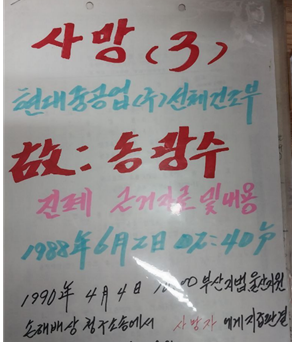 사망 (3)
현대중공업(주)선체건조부
故: 송광수
진폐 근거자료 및 내용
1988年 6月 2日 02:40分
1990年 4月 4日 10:00 부산지법 울산지원
손해배상 청구소송에서 사망자 에게 지급판결